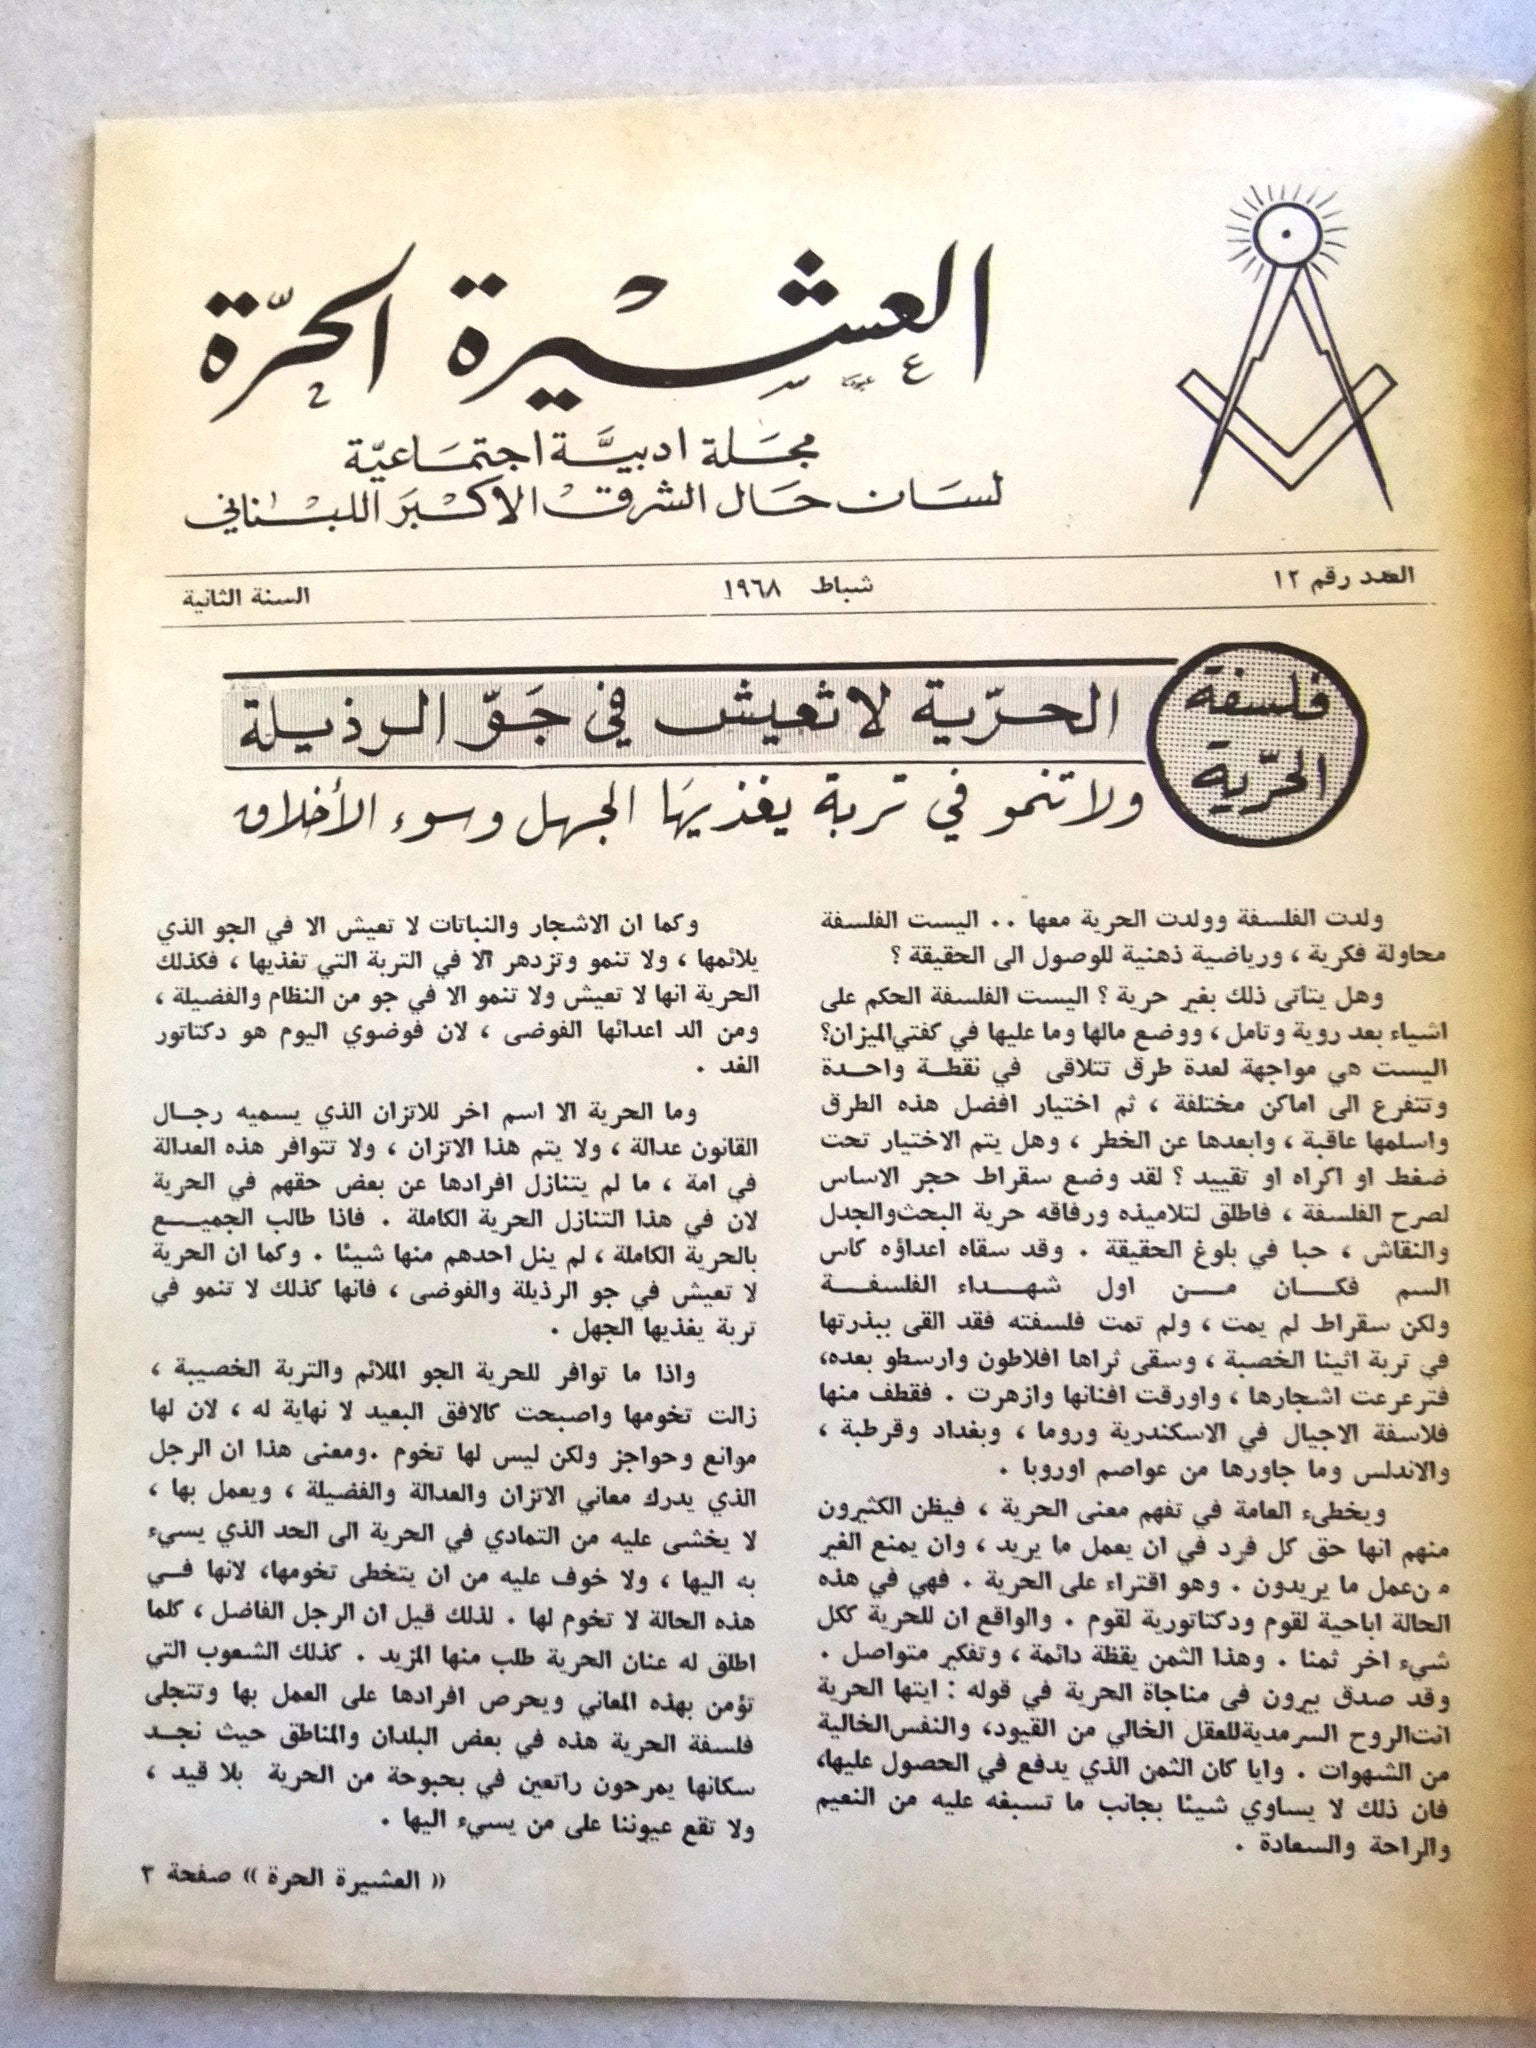 العشيرة الحرّة
مجَلة ادبيَّة اجتمَاعيّة
لسَان حَال الشرق الاكبَر اللبنَاني
العدد رقم ١٢
شباط ١٩٦٨
السنة الثانية
فلسفة
الحرّية
الحرّية لا تعيش في جَوّ الرذيلة
ولا تنمو في تربة يغذيهَا الجهل وسوء الأخلاق
ولدت الفلسفة وولدت الحرية معها .. اليست الفلسفة
محاولة فكرية ، ورياضية ذهنية للوصول الى الحقيقة ؟
وهل يتاتى ذلك بغير حرية ؟ اليست الفلسفة الحكم على
اشياء بعد روية وتامل ، ووضع مالها وما عليها في كفتي الميزان؟
اليست هي مواجهة لعدة طرق تتلاقى في نقطة واحدة
وتتفرع الى اماكن مختلفة ، ثم اختيار افضل هذه الطرق
واسلمها عاقبة ، وابعدها عن الخطر ، وهل يتم الاختيار تحت
ضغط او اكراه او تقييد ؟ لقد وضع سقراط حجر الاساس
لصرح الفلسفة ، فاطلق لتلاميذه ورفاقه حرية البحث والجدل
والنقاش ، حبا في بلوغ الحقيقة . وقد سقاه اعداؤه كاس
السم فكان من اول شهداء الفلسفة
ولكن سقراط لم يمت ، ولم تمت فلسفته فقد القى ببذرتها
في تربة اثينا الخصبة ، وسقى ثراها افلاطون وارسطو بعده،
فترعرعت اشجارها ، واورقت افنانها وازهرت . فقطف منها
فلاسفة الاجيال في الاسكندرية وروما ، وبغداد وقرطبة ،
والاندلس وما جاورها من عواصم اوروبا .
ويخطىء العامة في تفهم معنى الحرية ، فيظن الكثيرون
منهم انها حق كل فرد في ان يعمل ما يريد ، وان يمنع الغير
من عمل ما يريدون . وهو اقتراء على الحرية . فهي في هذه
الحالة اباحية لقوم ودكتاتورية لقوم . والواقع ان للحرية ككل
شيء اخر ثمنا . وهذا الثمن يقظة دائمة ، وتفكير متواصل .
وقد صدق بيرون في مناجاة الحرية في قوله : ايتها الحرية
انت الروح السرمدية للعقل الخالي من القيود، والنفس الخالية
من الشهوات . وايا كان الثمن الذي يدفع في الحصول عليها،
فان ذلك لا يساوي شيئا بجانب ما تسبغه عليه من النعيم
والراحة والسعادة .
وكما ان الاشجار والنباتات لا تعيش الا في الجو الذي
يلائمها ، ولا تنمو وتزدهر الا في التربة التي تغذيها ، فكذلك
الحرية انها لا تعيش ولا تنمو الا في جو من النظام والفضيلة ،
ومن الد اعدائها الفوضى ، لان فوضوي اليوم هو دكتاتور
الغد .
وما الحرية الا اسم اخر للاتزان الذي يسميه رجال
القانون عدالة ، ولا يتم هذا الاتزان ، ولا تتوافر هذه العدالة
في امة ، ما لم يتنازل افرادها عن بعض حقهم في الحرية
لان في هذا التنازل الحرية الكاملة . فاذا طالب الجميع
بالحرية الكاملة ، لم ينل احدهم منها شيئا . وكما ان الحرية
لا تعيش في جو الرذيلة والفوضى ، فانها كذلك لا تنمو في
تربة يغذيها الجهل .
واذا ما توافر للحرية الجو الملائم والتربة الخصيبة ،
زالت تخومها واصبحت كالافق البعيد لا نهاية له ، لان لها
موانع وحواجز ولكن ليس لها تخوم .ومعنى هذا ان الرجل
الذي يدرك معاني الاتزان والعدالة والفضيلة ، ويعمل بها ،
لا يخشى عليه من التمادي في الحرية الى الحد الذي يسيء
به اليها ، ولا خوف عليه من ان يتخطى تخومها، لانها في
هذه الحالة لا تخوم لها . لذلك قيل ان الرجل الفاضل ، كلما
اطلق له عنان الحرية طلب منها المزيد . كذلك الشعوب التي
تؤمن بهذه المعاني ويحرص افرادها على العمل بها وتتجلى
فلسفة الحرية هذه في بعض البلدان والمناطق حيث نجد
سكانها يمرحون راتعين في بحبوحة من الحرية بلا قيد ،
ولا تقع عيوننا على من يسيء اليها .
« العشيرة الحرة » صفحة ٣